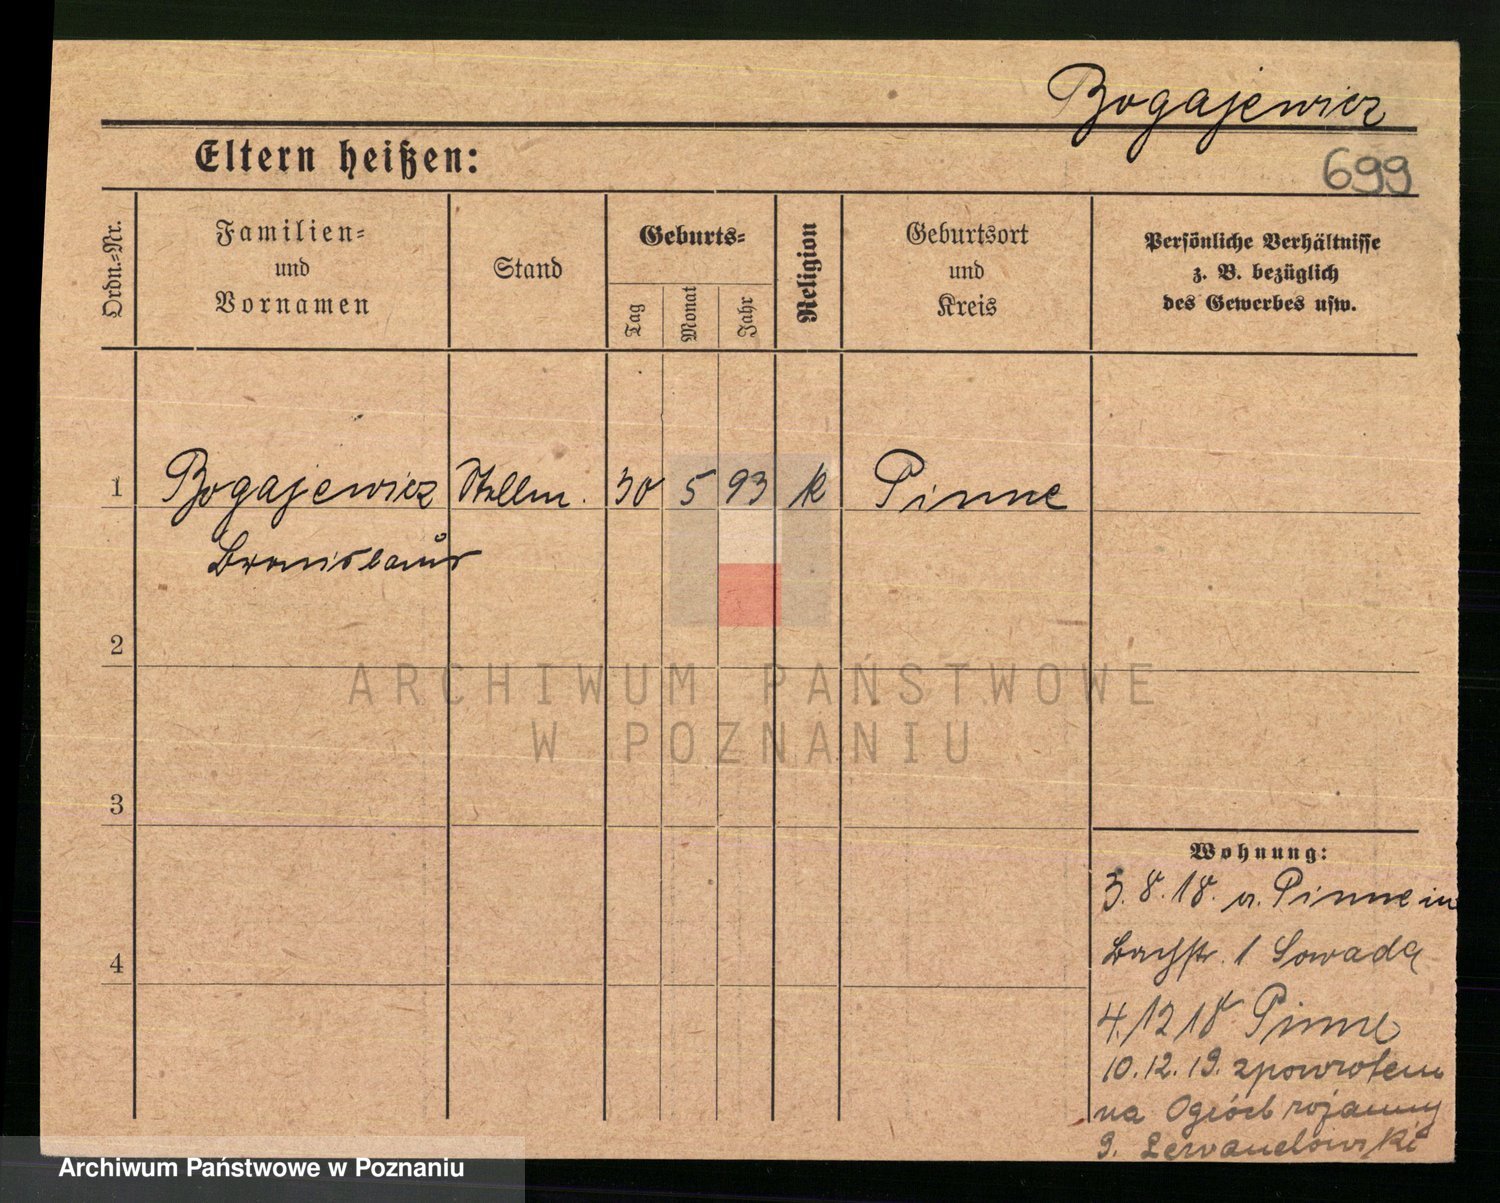 Bogajewicz
Eltern heißen:
699
Ordn.-Nr.
Familien-
und
Vornamen
Stand
Geburts-
Tag
Monat
Jahr
Religion
Geburtsort
und
Kreis
Persönliche Verhältnisse
z. B. bezüglich
des Gewerbes usw.
1 Bogajewicz Stellm. 30 5 93 k Pinne
Bronislaus
2
ARCHIWUM PAŃSTWOWE
W POZNANIU
3
Wohnung:
3.8.18. v. Pinne in
Bachstr. 1 Sowada
4
4.12 18 Pinne
10.12.19. zpowrotem
na Ogród
9.
Archiwum Państwowe w Poznaniu